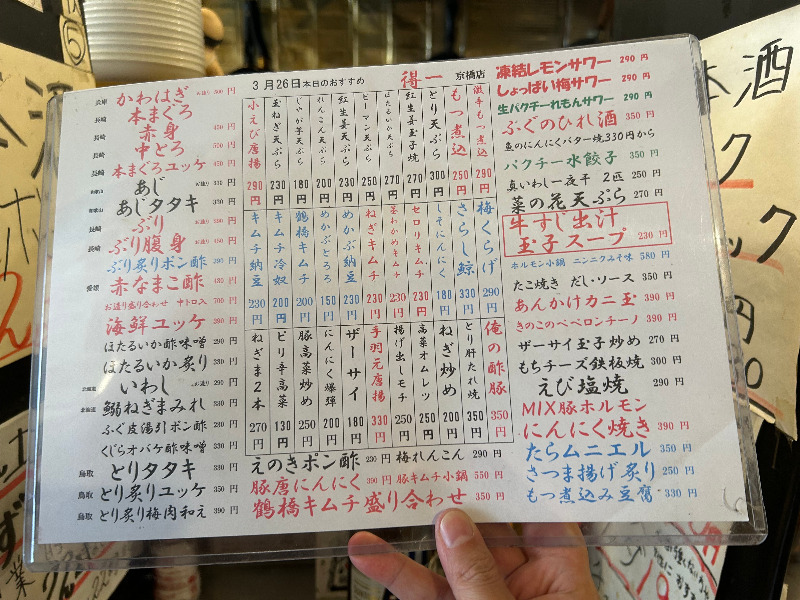 3月26日本日のおすすめ 得一 京橋店
兵庫 かわはぎ 500円
長崎 本まぐろ
長崎 赤身 450円
長崎 中とろ 550円
長崎 本まぐろユッケ 450円
和歌山 あじ 330円
和歌山 あじタタキ 330円
長崎 ぶり 330円
長崎 ぶり腹身 450円
ぶり炙りポン酢 290円
愛媛 赤なまこ酢 430円
お造り盛り合わせ 中トロ入 700円
海鮮ユッケ 390円
ほたるいか酢味噌 330円
ほたるいか炙り 330円
北海道 いわし 290円
北海道 鰯ねぎまみれ 330円
ふぐ皮湯引ポン酢 230円
くじらオバケ酢味噌 330円
鳥取 とりタタキ 330円
鳥取 とり炙りユッケ 350円
鳥取 とり炙り梅肉和え 390円
激辛もつ煮込 290円
もつ煮込 250円
とり天ぷら 300円
紅生姜玉子焼 270円
ほたるいか天ぷら 270円
ピーマン天ぷら 250円
紅生姜天ぷら 230円
れんこん天ぷら 200円
じゃが芋天ぷら 180円
玉ねぎ天ぷら 230円
小えび唐揚 290円
梅くらげ 290円
さらし鯨 330円
しそにんにく 180円
セロリキムチ 230円
茎わかめキムチ 230円
ねぎキムチ 230円
めかぶ納豆 230円
めかぶとろろ 150円
鶴橋キムチ 200円
キムチ冷奴 200円
キムチ納豆 230円
俺の酢豚 350円
とり肝たれ焼 350円
ねぎ炒め 200円
高菜オムレツ 250円
揚げ出しモチ 250円
手羽元唐揚 330円
ザーサイ 180円
にんにく爆弾 200円
豚高菜炒め 250円
ピリ辛高菜 130円
ねぎま2本 270円
えのきポン酢 230円 梅れんこん 290円
豚唐にんにく 390円 豚キムチ小鍋 550円
鶴橋キムチ盛り合わせ 350円
凍結レモンサワー 290円
しょっぱい梅サワー 290円
生パクチーれもんサワー 290円
ふぐのひれ酒 350円
魚のにんにくバター焼330円から
パクチー水餃子 350円
真いわし一夜干 2匹 250円
菜の花天ぷら 270円
牛すじ出汁
玉子スープ 230円
ホルモン小鍋 ニンニクみそ味 580円
たこ焼き だし・ソース 350円
あんかけカニ玉 390円
きのこのペペロンチーノ 390円
ザーサイ玉子炒め 270円
もちチーズ鉄板焼 300円
えび塩焼 290円
MIX豚ホルモン
にんにく焼き 390円
たらムニエル 350円
さつま揚げ炙り 250円
もつ煮込み豆腐 330円